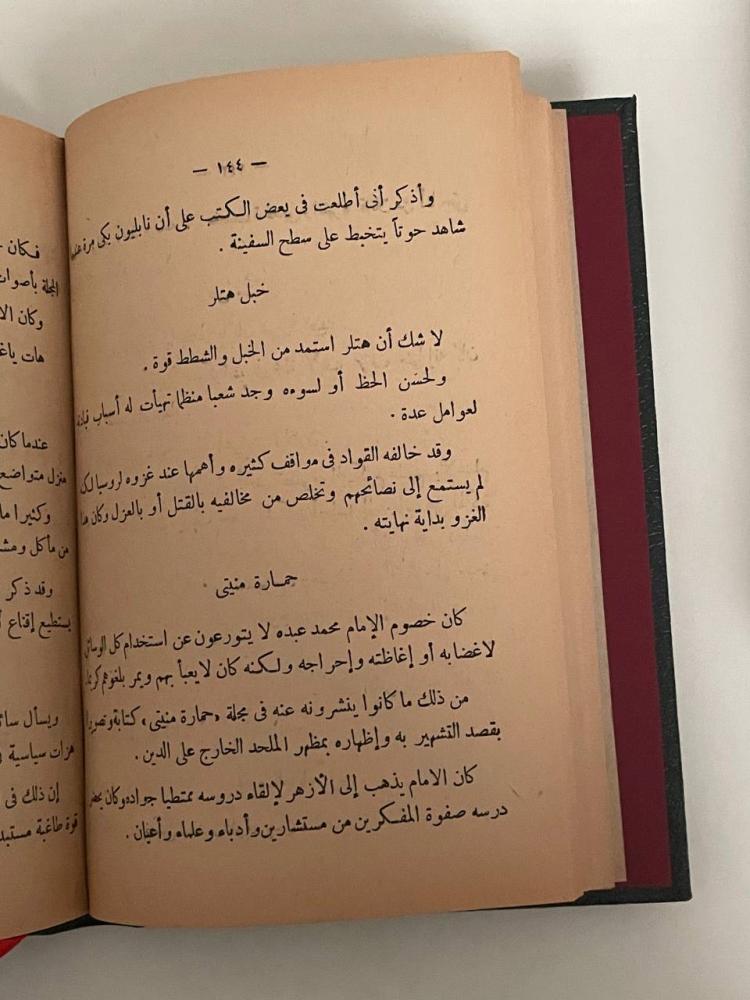 — ١٤٤ —
وأذكر أنى أطلعت فى بعض الكتب على أن نابليون بكى مرة عندما
شاهد حوتاً يتخبط على سطح السفينة .
خبل هتلر
لا شك أن هتلر استمد من الخبل والشطط قوة .
ولحسن الحظ أو لسوءه وجد شعبا منظما تهيأت له أسباب قيادته
لعوامل عدة .
وقد خالفه القواد فى مواقف كثيره وأهمها عند غزوه لروسيا لكن
لم يستمع إلى نصائحهم وتخلص من مخالفيه بالقتل أو بالعزل وكان هذا
الغزو بداية نهايته .
حمـارة منيتى
كان خصوم الإمام محمد عبده لا يتورعون عن استخدام كل الوسائل
لاغضابه أو إغاظته وإحراجه ولكنه كان لا يعبأ بهم ويمر بلغوهم كريما
من ذلك ما كانوا ينشرونه عنه فى مجلة «حمارة منيتى» كتابة وتصويرا
بقصد التشهير به وإظهاره بمظهر الملحد الخارج على الدين .
كان الامام يذهب إلى الأزهر لإلقاء دروسه ممتطيا جواده وكان يحضر
درسه صفوة المفكرين من مستشارين وأدباء وعلماء وأعيان .
فكان
المجلة
وكان
هات
عندما كان
منزل متواضع
وكثيرا ما
من مأكل
وقد ذكر
يستطيع إقناع
ويسأل
هزات سياسية
إن ذلك فى
قوة طاغية